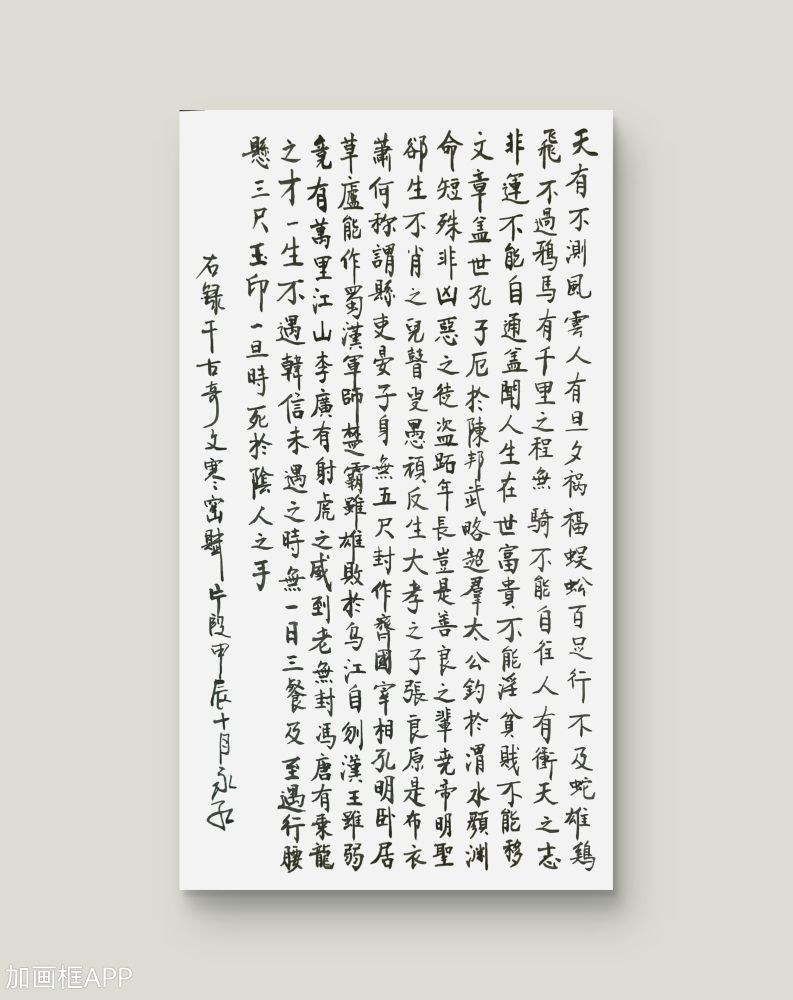 天有不測風雲人有旦夕祸福蜈蚣百足行不及蛇雄鷄
飛不過鴉馬有千里之程無騎不能自往人有衝天之志
非運不能自通盖聞人生在世富貴不能淫貧賎不能移
文章盖世孔子厄於陳邦武略超羣太公釣於渭水顏渊
命短殊非凶惡之徒盗跖年長豈是善良之輩尭帝明聖
卻生不肖之兒瞽叟愚頑反生大孝之子張良原是布衣
蕭何称謂縣吏晏子身無五尺封作齊國宰相孔明卧居
草廬能作蜀漢軍師楚霸雖雄敗於乌江自刎漢王雖弱
竟有萬里江山李廣有射虎之威到老無封馮唐有乗龍
之才一生不遇韓信未遇之時無一日三餐及至遇行腰
懸三尺玉印一旦時死於陰人之手
右録千古奇文寒窑賦片段甲辰十月永
加画框APP